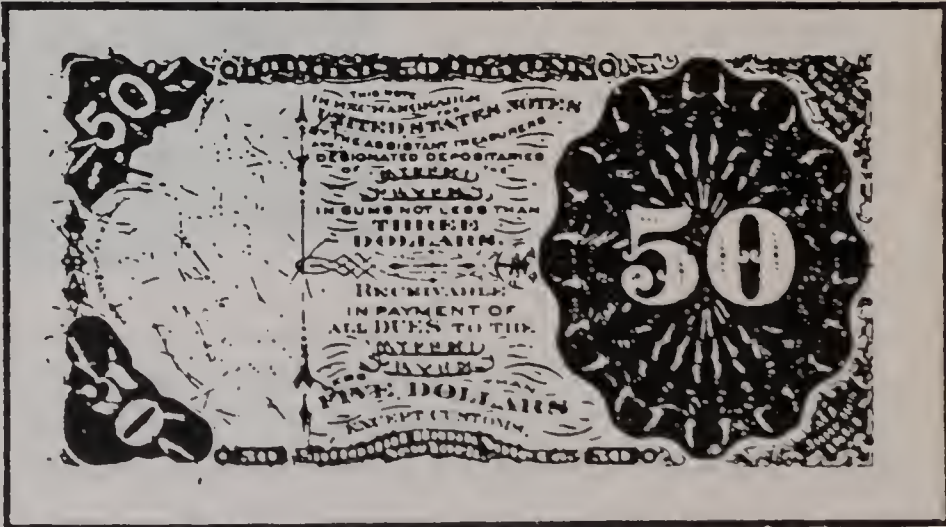 50
50 CENTS
THIS NOTE
FOR
UNITED STATES NOTES
BY THE ASSISTANT TREASURERS
DESIGNATED DEPOSITARIES
OF THE
UNITED
STATES
IN SUMS NOT LESS THAN
THREE
DOLLARS.
RECEIVABLE
IN PAYMENT OF
ALL DUES TO THE
UNITED
STATES
LESS THAN
FIVE DOLLARS
EXCEPT CUSTOMS.
50
50
50
50